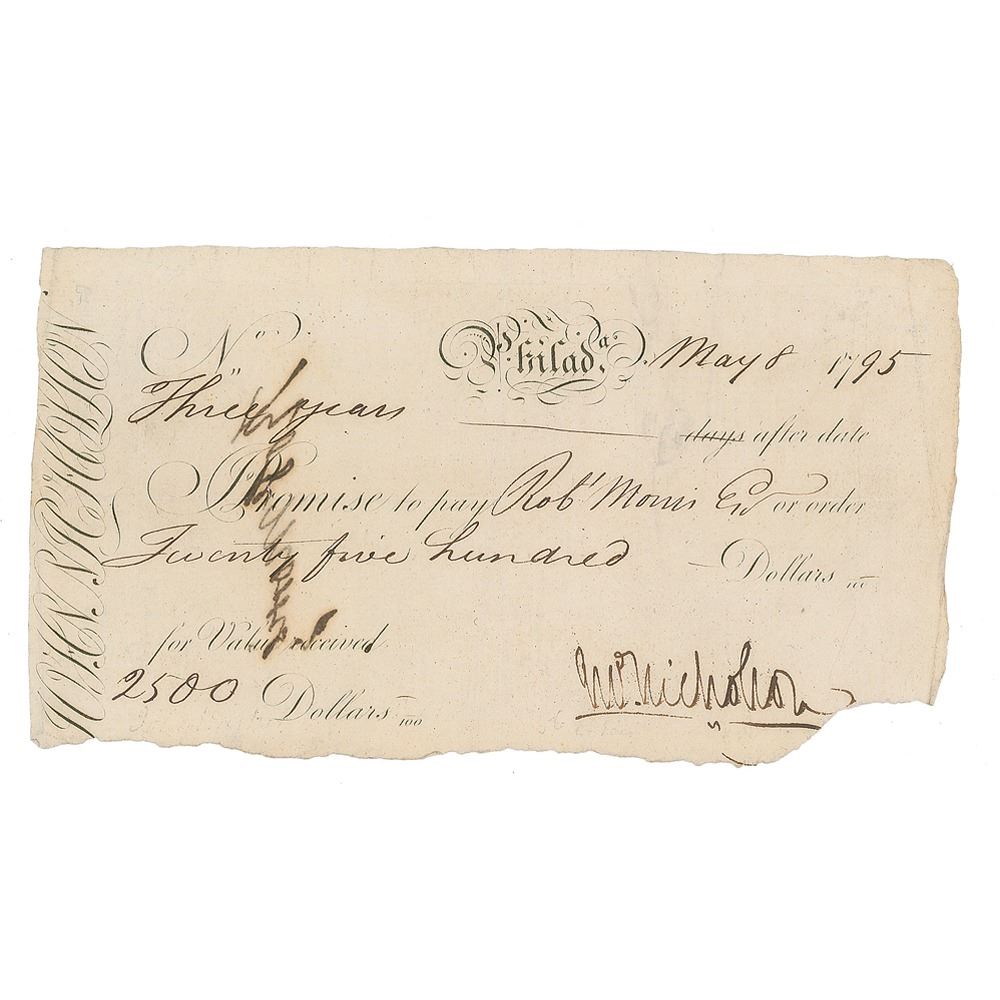 JOHN NICHOLSON
No
Philada. May 8 1795
Three years days after date
Promise to pay Robt Morris Esqr or order
Twenty five hundred Dollars 100
for Value received
2500 Dollars 100
Jno. Nicholson